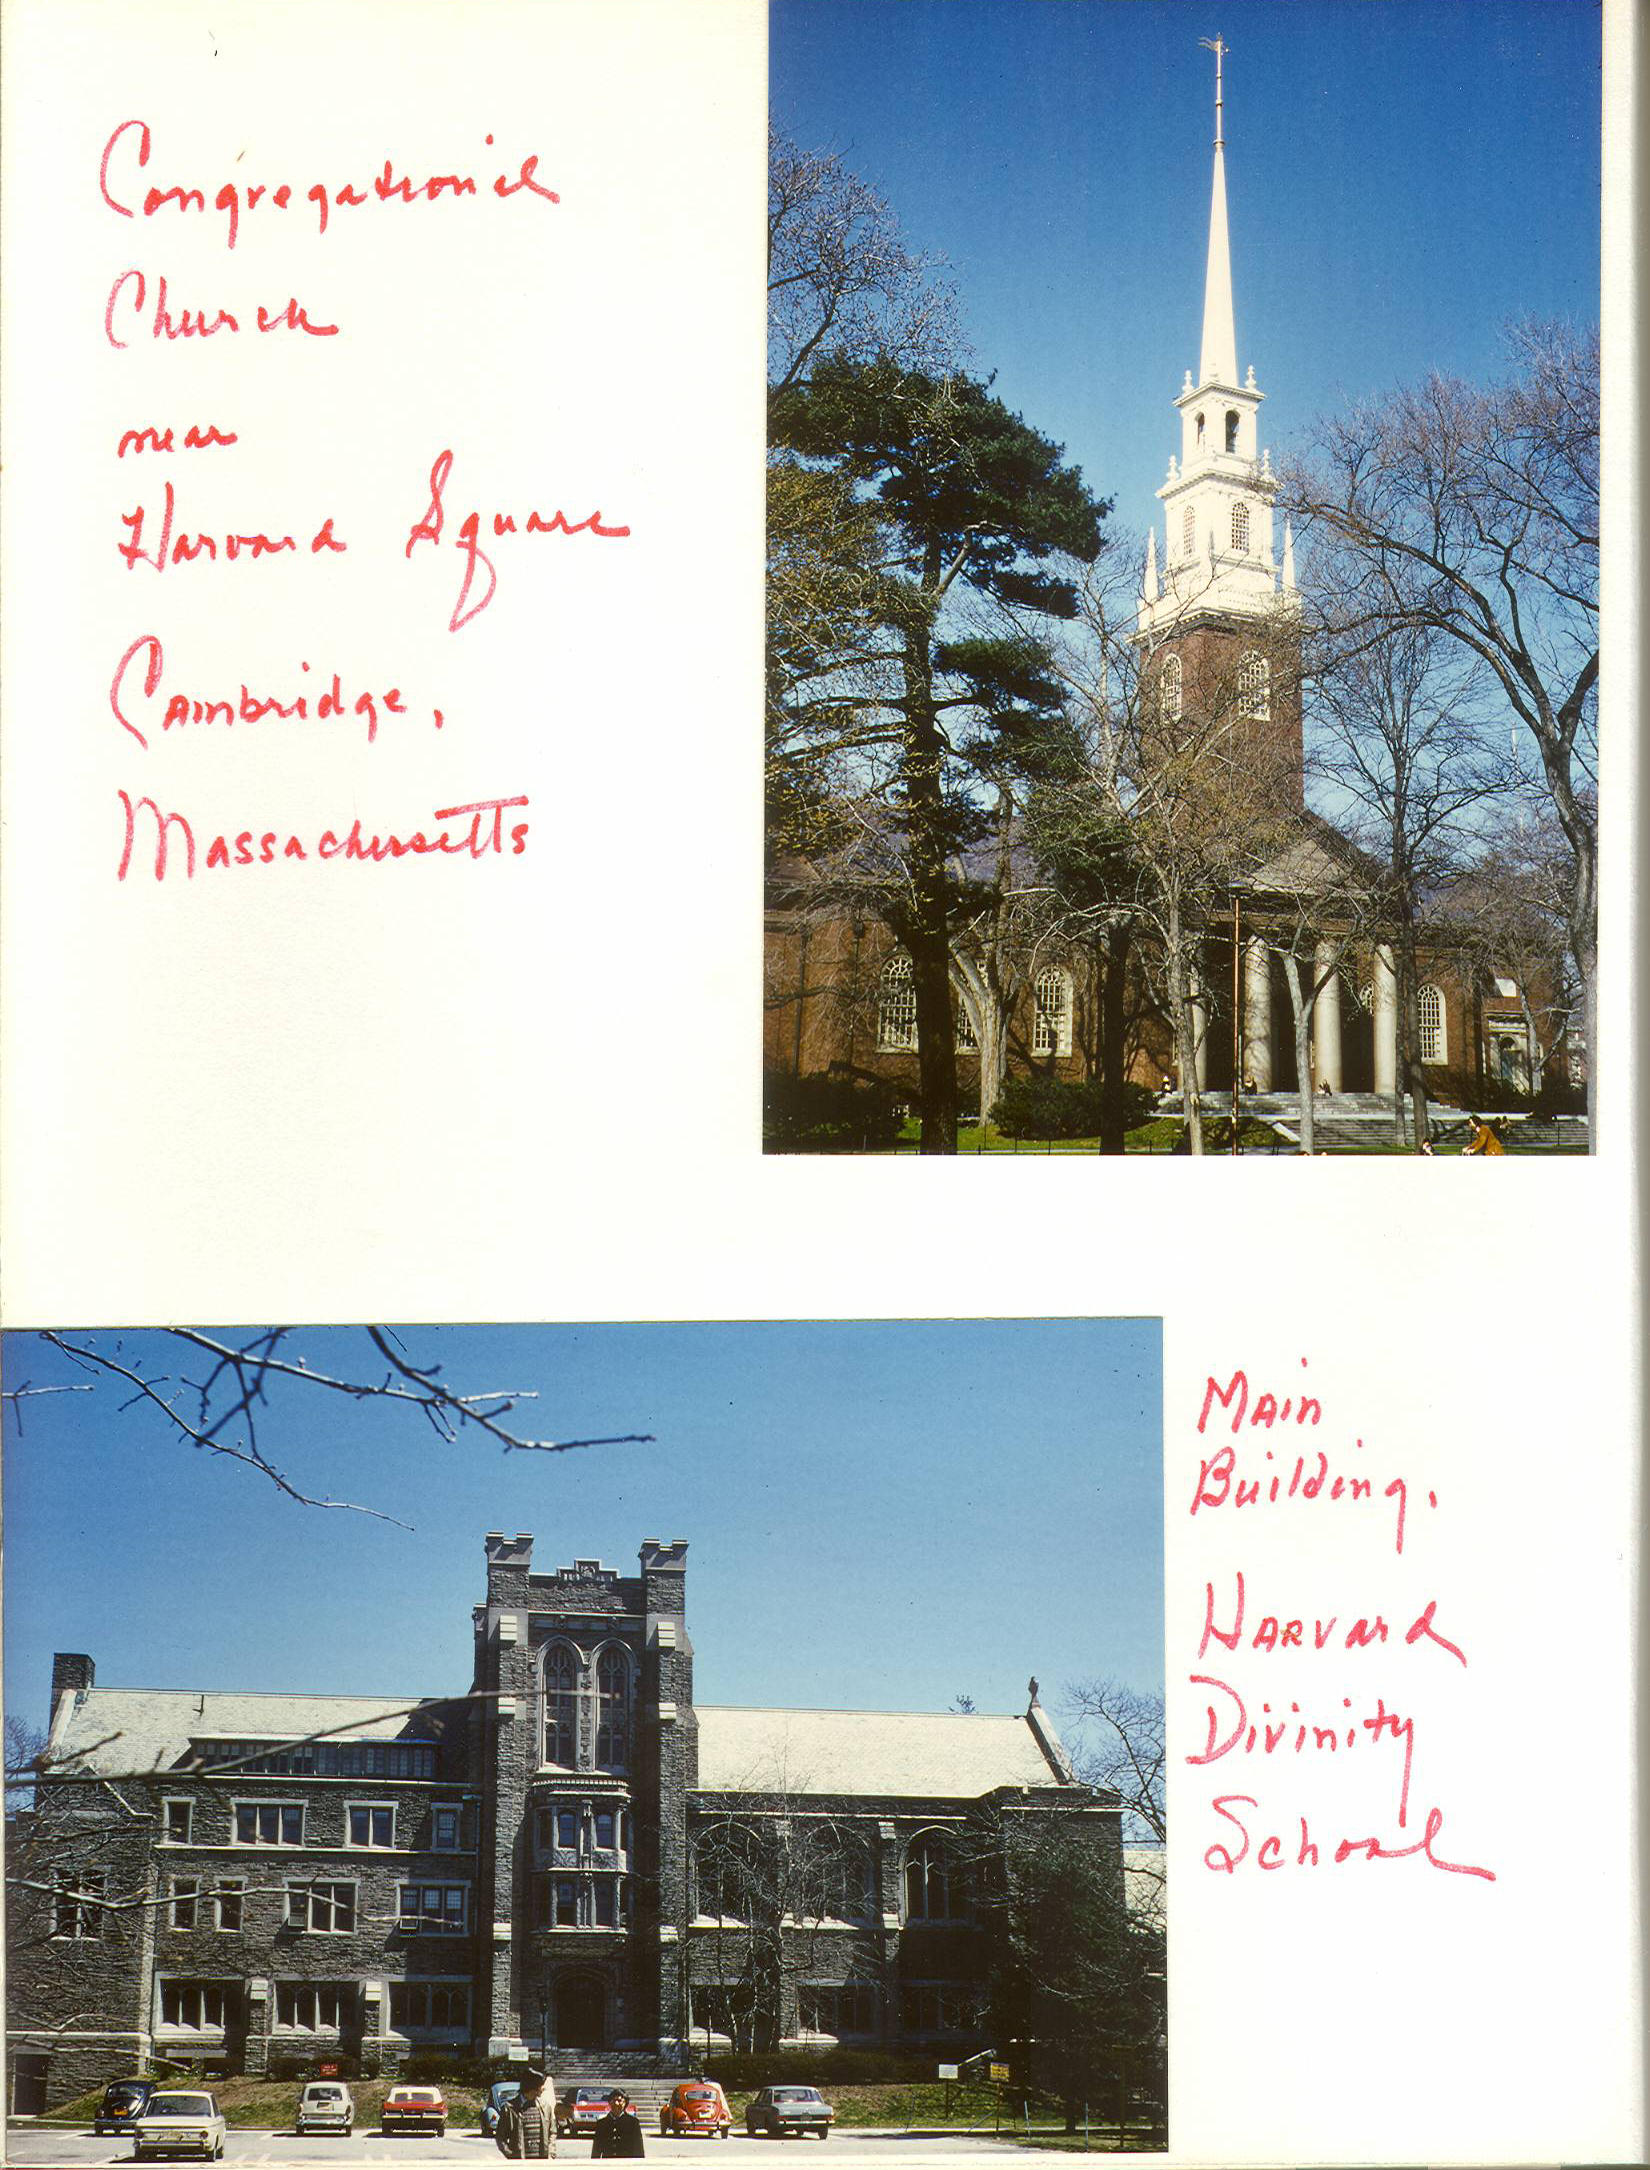 Congregational
Church
near
Harvard Square
Cambridge,
Massachusetts
Main
Building,
Harvard
Divinity
School